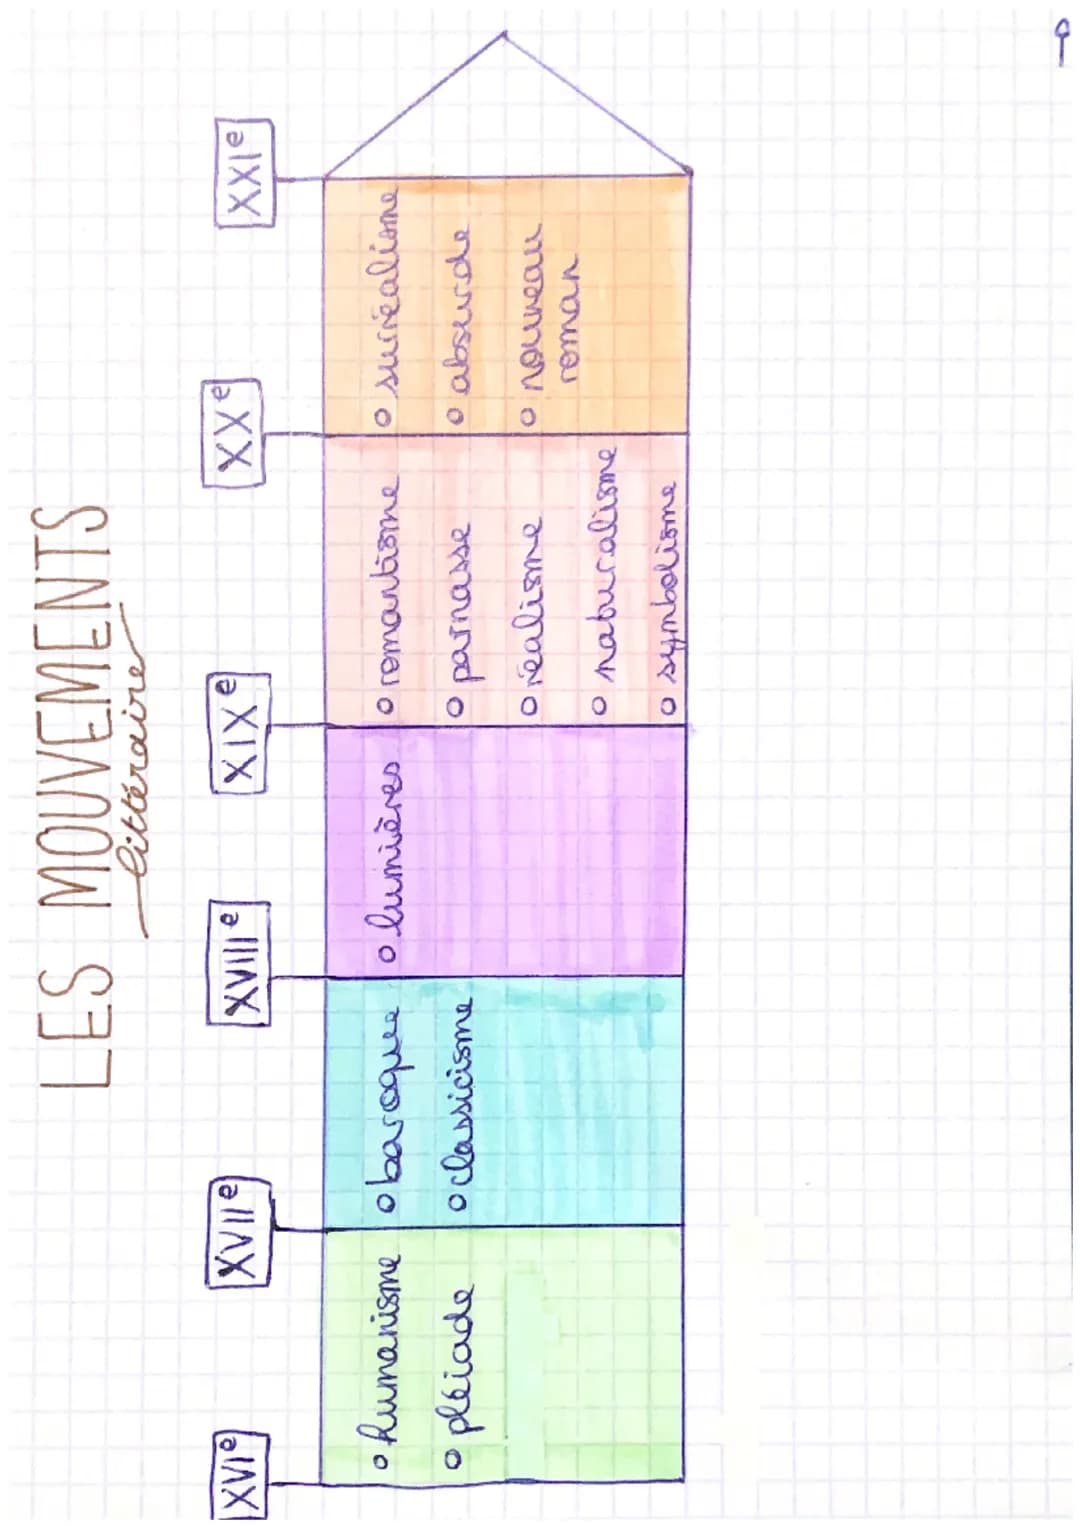 LES MOUVEMENTS
littéraire
XVIe
XVIIe
XVIIIe
XIXe
XXe
XXIe
o humanisme
o pléiade
o baroque
o classicisme
o lumières
o romantisme
o parnasse
o réalisme
o naturalisme
o symbolisme
o suréalisme
o absurde
o nouveau
roman